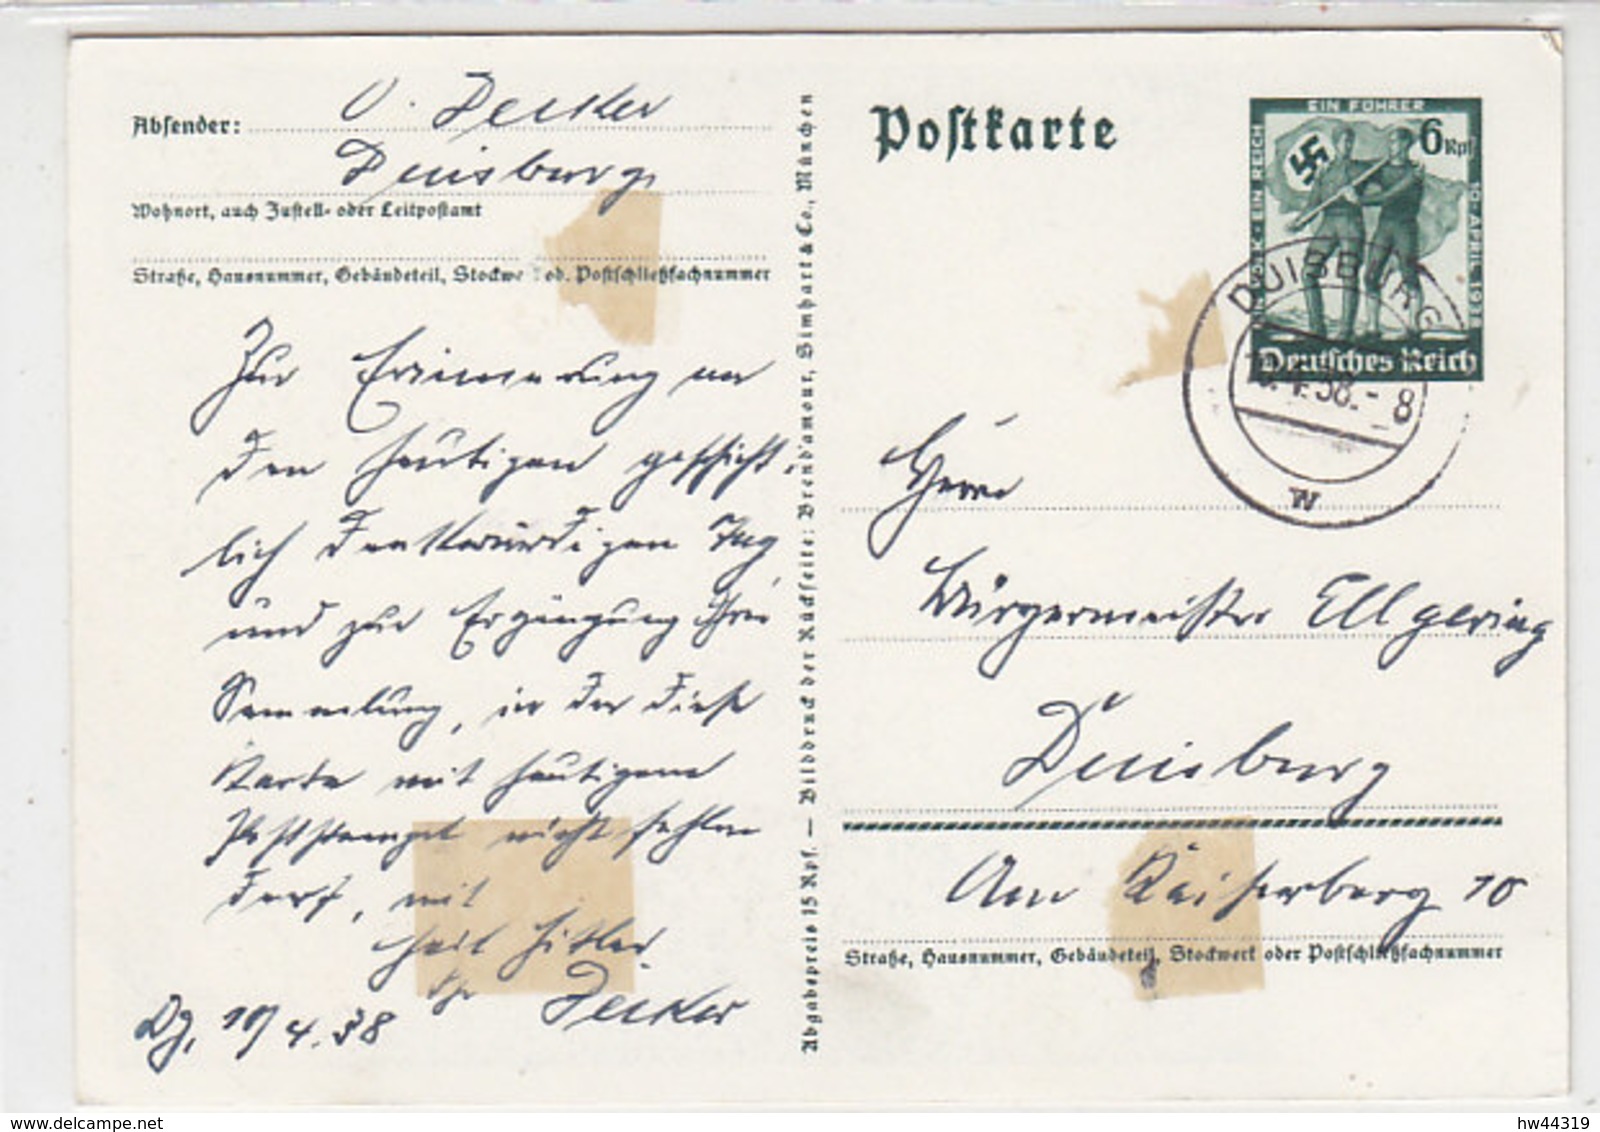 Absender: O. Decker
Duisburg,
Wohnort, auch Zustell- oder Leitpostamt
Straße, Hausnummer, Gebäudeteil, Stockwe od. Postschließfachnummer
Zur Erinnerung an
den heutigen geschicht-
lich denkwürdigen Tag
und zur Ergänzung Ihrer
Sammlung, in der diese
Karte mit heutigem
Poststempel nicht fehlen
darf, mit
Heil Hitler
Ihr Decker
Dg, 10/4.38
Abgabepreis 15 Rpf. — Bilddruck der Rückseite: Brend'amour, Simhart & Co., München
Postkarte
EIN FÜHRER
EIN VOLK · EIN REICH
6 Rpf
10. APRIL 1938
Deutsches Reich
DUISBURG
10.4.38.-8
W
Herrn
Bürgermeister Ellgering
Duisburg
Am Kaiserberg 10
Straße, Hausnummer, Gebäudeteil, Stockwerk oder Postschließfachnummer
delcampe.net
hw44319